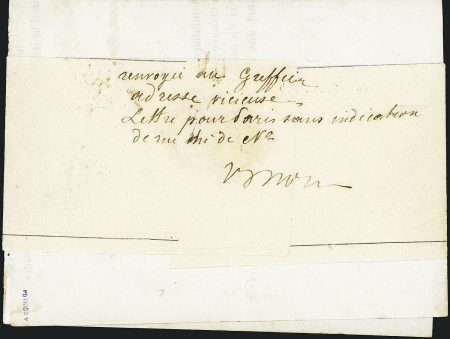 renvoyée au Greffier
adresse vicieuse
Lettre pour Paris sans indication
de rue ni de No